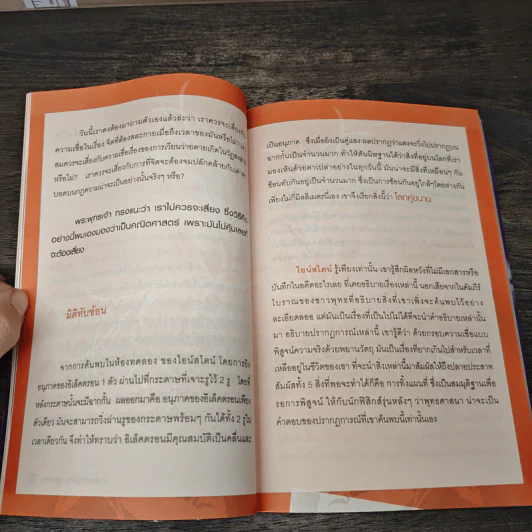 วันนี้เราคงต้องมาถามตัวเองแล้วล่ะว่า เราควรจะเสี่ยงกับ
ความเชื่อในเรื่อง จิตที่ต้องสละกายเมื่อถึงเวลาของมันหรือไม่? เรา
สมควรจะเสี่ยงกับความเชื่อเรื่องของการเรียนว่ายตายเกิดในวัฏสงสาร
หรือไม่? เราควรจะเสี่ยงกับการที่จิตจะต้องจมปลักคล้ายกับ
บอดบนกฎความน่าจะเป็นอย่างนั้นจริงๆ หรือ?
พระพุทธเจ้า ทรงแนะว่า เราไม่ควรจะเสี่ยง ซึ่งวิธีคิด
อย่างนี้ผมเองมองว่าเป็นคณิตศาสตร์ เพราะมันไม่คุ้มเลยที่
จะต้องเสี่ยง
มิติทับซ้อน
จากการค้นพบในห้องทดลอง ของไอน์สไตน์ โดยการยิง
อนุภาคของอิเล็คตรอน 1 ตัว ผ่านไปที่กระดาษที่เจาะรูไว้ 2 รู โดยที่
หลังกระดาษนั้นจะมีฉากกั้น ผลออกมาคือ อนุภาคของอิเล็คตรอนเพียง
ตัวเดียว มันจะสามารถวิ่งผ่านรูของกระดาษพร้อมๆ กันได้ทั้ง 2 รูใน
เวลาเดียวกัน จึงทำให้ทราบว่า อิเล็คตรอนมีคุณสมบัติเป็นคลื่นและ
เป็นอนุภาค ซึ่งเมื่อยิงเป็นคู่แสง ผลปรากฏว่าแสงจะวิ่งไปปรากฏบน
ฉากกั้นเป็นจำนวนมาก ทำให้สันนิษฐานได้ว่าสิ่งที่อยู่บนโลกที่เรา
มองเห็นด้วยตาเปล่าอย่างในทุกวันนี้ มันน่าจะมีสิ่งที่เหมือนๆ กัน
ซ้อนทับกันอยู่เป็นจำนวนมาก ซึ่งเป็นการซ้อนกันอยู่ใกล้ๆโดยห่างกัน
เพียงไม่กี่มิลลิเมตรนี่เอง เขาจึงเรียกสิ่งนี้ว่า โลกคู่ขนาน
ไอน์สไตน์ รู้เพียงเท่านั้น เขารู้สึกผิดหวังที่ไม่มีเอกสารหรือ
บันทึกในอดีตอะไรเลย ที่เคยอธิบายเรื่องเหล่านี้ นอกเสียจากในคัมภีร์
โบราณของชาวพุทธที่อธิบายสิ่งที่เขาเพิ่งจะค้นพบไว้อย่าง
ละเอียดลออ แต่มันเป็นเรื่องที่เป็นไปไม่ได้ที่จะนำคำอธิบายเหล่านั้น
มา อธิบายปรากฏการณ์เหล่านี้ เขารู้ดีว่า ด้วยกรอบความเชื่อแบบ
พิสูจน์ความจริงด้วยพยานวัตถุ มันเป็นเรื่องที่ยากเกินไปสำหรับเวลาที่
เหลืออยู่ในชีวิตของเขา ที่จะนำสิ่งเหล่านี้มาสัมผัสให้ถึงปลายประสาท
สัมผัสทั้ง 5 สิ่งที่พอจะทำได้ก็คือ การทิ้งแผนที่ ซึ่งเป็นสมมุติฐานเพื่อ
รอการพิสูจน์ ให้กับนักฟิสิกส์รุ่นหลังๆ ว่าพุทธศาสนา น่าจะเป็น
คำตอบของปรากฏการณ์ที่เขาค้นพบนี้เท่านั้นเอง